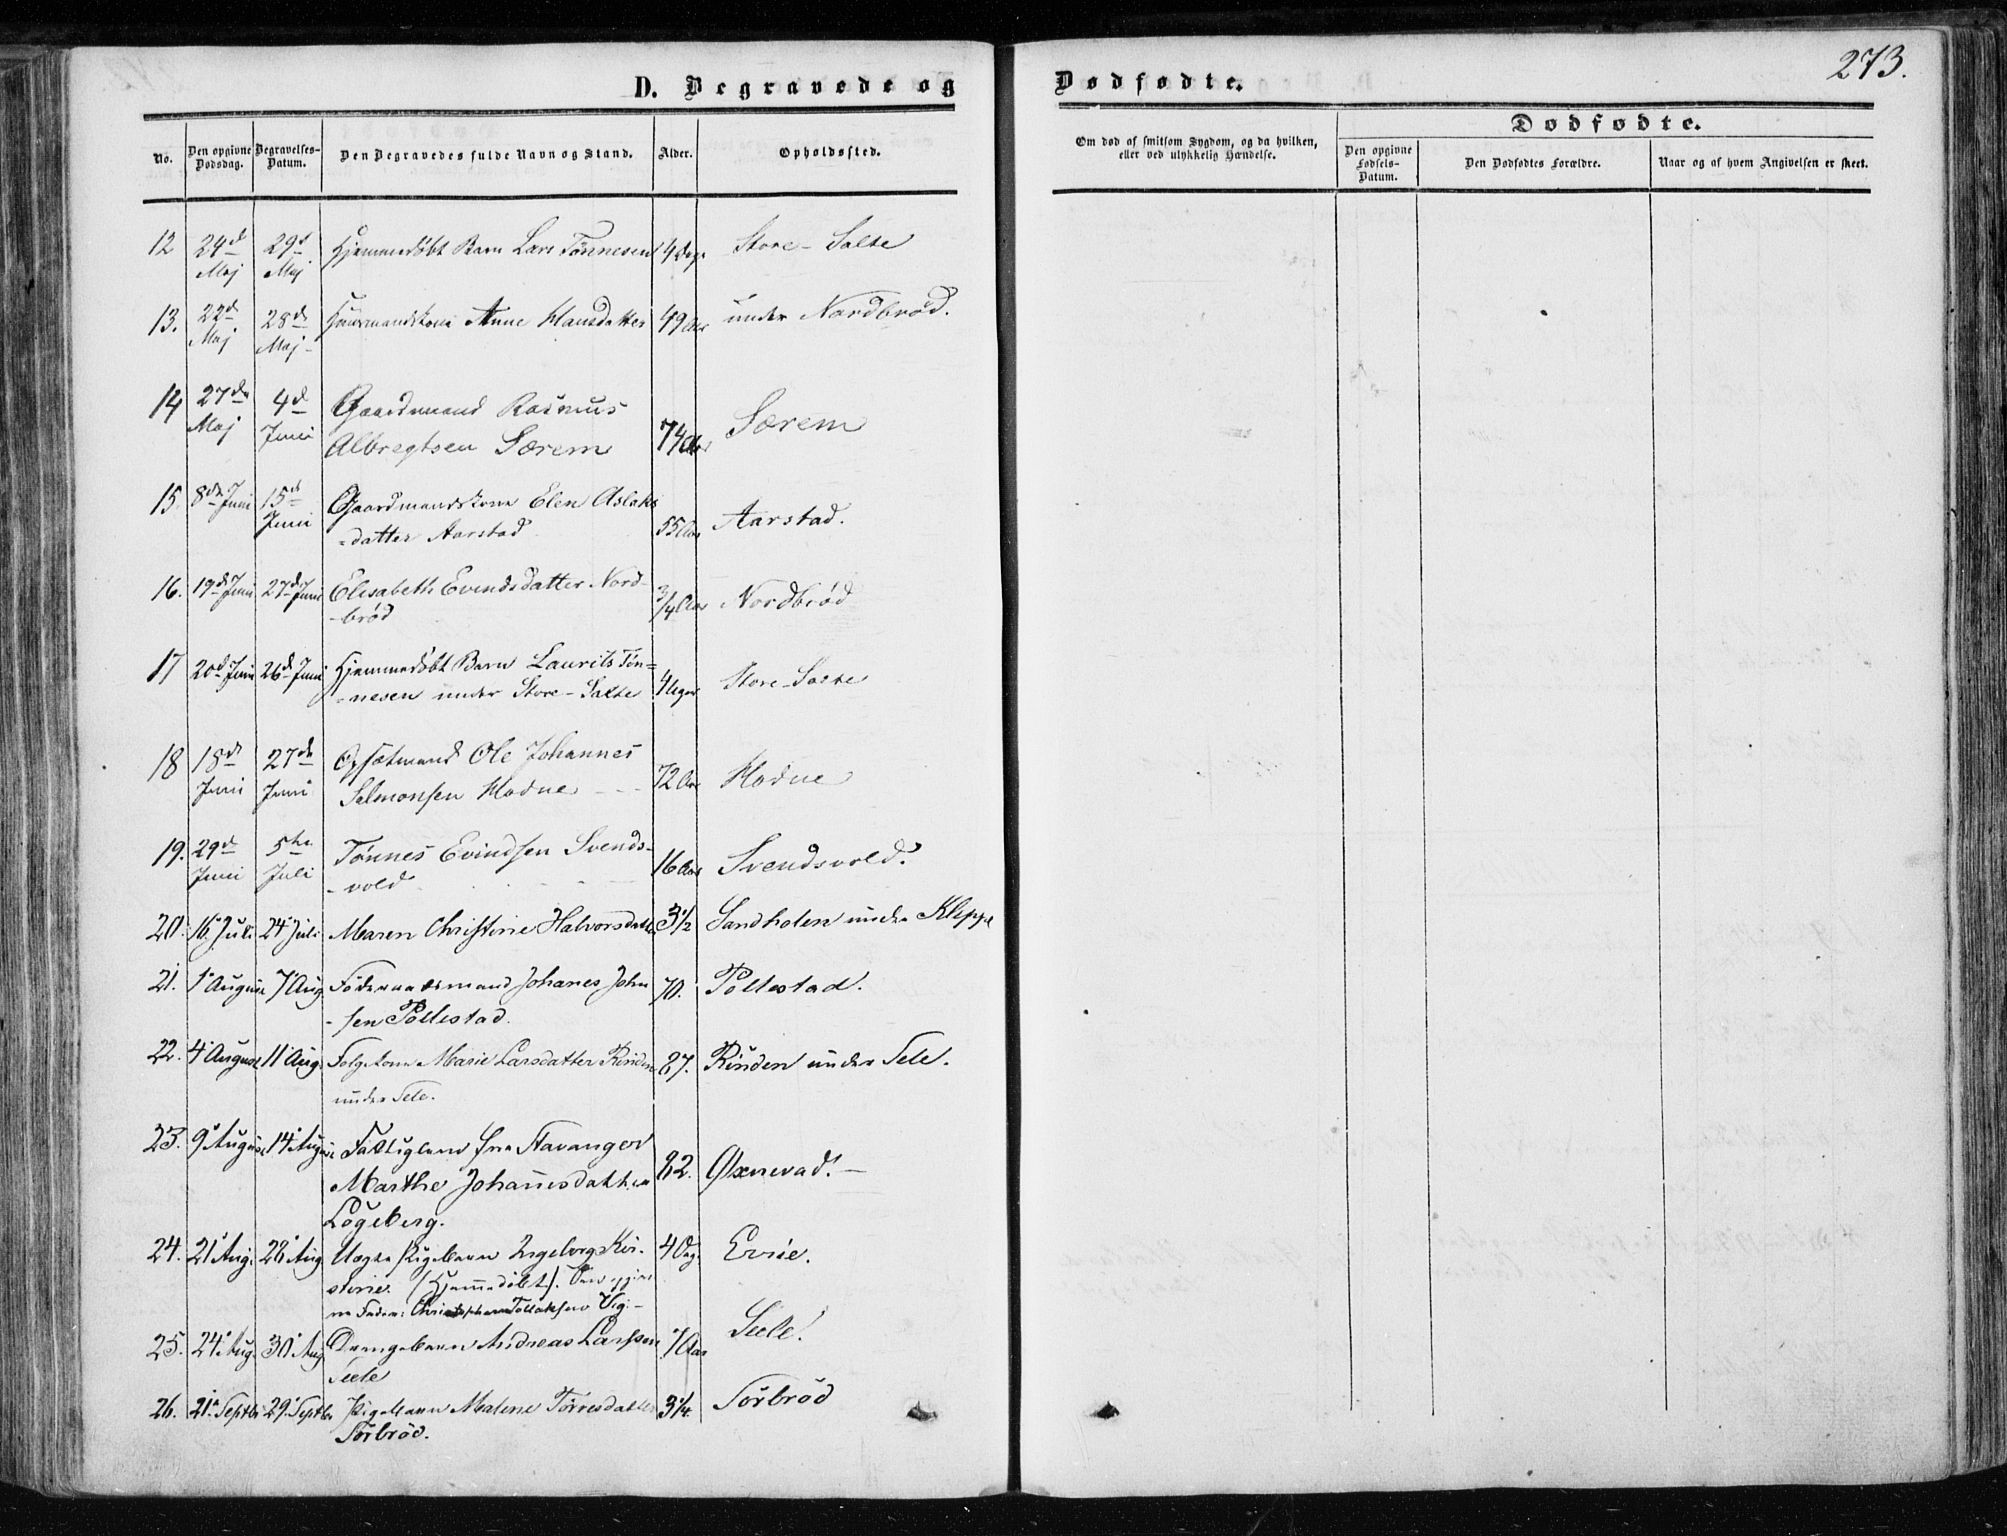 273.
D. Begravede og Dødfødte.
No.
Den opgivne Dødsdag.
Begravelses-Datum.
Den Begravedes fulde Navn og Stand.
Alder.
Opholdssted.
Om død af smitsom Sygdom, og da hvilken, eller ved ulykkelig Hændelse.
Dødfødte.
Den opgivne Fødsels-Datum.
Den Dødfødtes Forældre.
Naar og af hvem Angivelsen er skeet.
12 24d Maj 29d Maj Hjemmedøbt Barn Lars Tønnesen 4 Dage Store-Salte
13. 22d Maj 28de Maj Huusmandskone Anne Hansdatter 49 Aar under Nordbrød.
14 27de Maj 4d Juni Gaardmand Rasmus
Albregtsen Særem 74 Aar Særem
15. 8de Juni 15d Juni Gaardmandskone Elen Aslaks
-datter Aarstad 55 Aar Aarstad.
16. 19d Juni 27d Juni Elisabeth Evindsdatter Nord-
-brød 3/4 Aar Nordbrød
17 20d Juni 26d Juni Hjemmedøbt Barn Laurits Tøn=
=nesen under Store-Salte 4 Uger Store-Salte
18 18de Juni 27de Juni Opsætmand Ole Johannes
Salmonsen Hodne 72 Aar Hodne
19. 29d Juni 5te Juli Tønnes Evindsen Svends-
-vold 16 Aar Svendsvold.
20. 16. Juli 24 Juli Maren Christine Halvorsdatter 3 1/2 Sandholen under Kleppe
21. 1. August 7. Aug Føderaadsmand Johanes John
-sen Pollestad. 70. Pollestad.
22. 4 August 11 Aug. Folgekone Marie Larsdatter Rinden
under Sele. 87. Rinden under Sele.
23. 9 August 14 August Fattiglem fra Stavanger
Marthe Johannesdatter
Logeberg. 82. Øxnevad.
24. 21 Aug. 28 Aug Uægte Pigebarn Ingeborg Kir-
stine. (Hjemmedøbt). Den opgivne Fader: Christopher Tollaksen Vig. 4 Dag. Ervie.
25. 24 Aug. 30 Aug Drengebarn Andreas Larssen
Seele 7 Aar Seele.
26. 21. Septbr 29. Septbr Pigebarn Malene Tørresdatter
Sørbrød. 3 1/4. Sørbrød